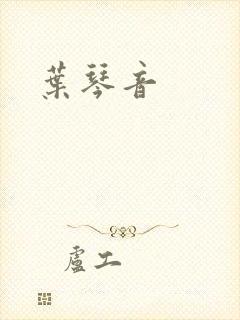 葉琴音
盧工